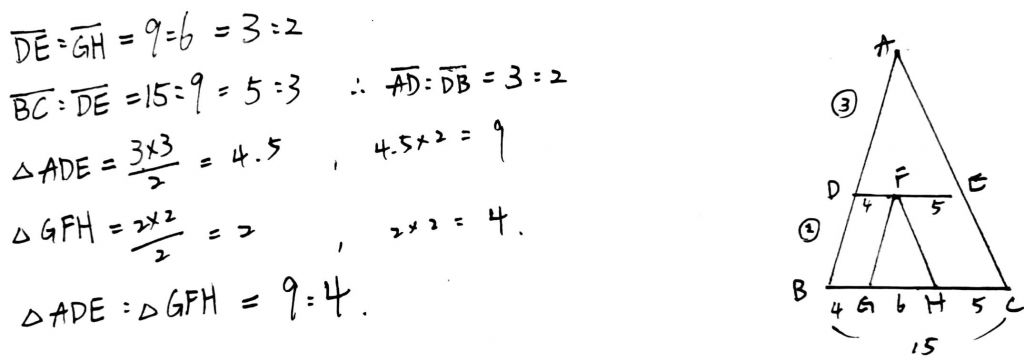 DE : GH = 9 : 6 = 3 : 2
BC : DE = 15 : 9 = 5 : 3 ∴ AD : DB = 3 : 2
△ADE = 3×3/2 = 4.5 , 4.5×2 = 9
△GFH = 2×2/2 = 2 , 2×2 = 4.
△ADE : △GFH = 9 : 4.
A
③
D F E
4 5
②
B 4 G 6 H 5 C
15